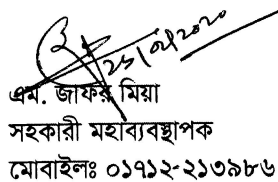 এম. জাফর মিয়া
সহকারী মহাব্যবস্থাপক
মোবাইলঃ ০১৭১২-২১৩৯৮৬